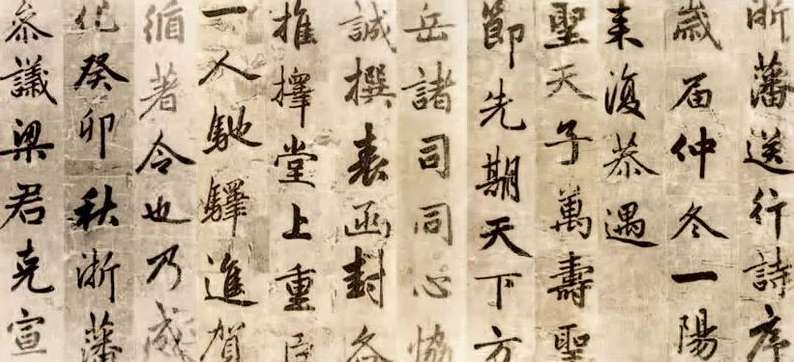 浙藩送行詩序
歲届仲冬一陽
来復恭遇
聖天子萬壽聖
節先期天下方
岳諸司同心協
誠撰表函封各
推擇堂上重臣
一人馳驛進賀
循著令也乃成
化癸卯秋浙藩
参議梁君克宣